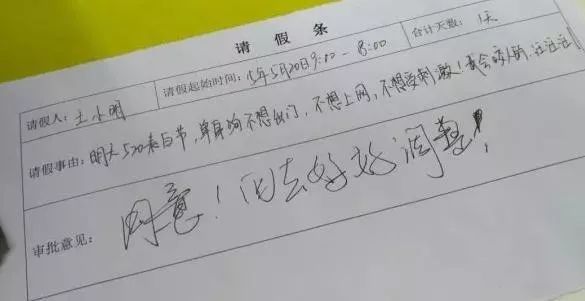 请 假 条
请假人：土小明 请假起始时间：15年5月20日9:00-8:00 合计天数：1天
请假事由：明天520表白节，单身狗不想出门，不想上网，不想受刺激！我会咬人的，汪汪汪！
审批意见：同意！回去好好调整！